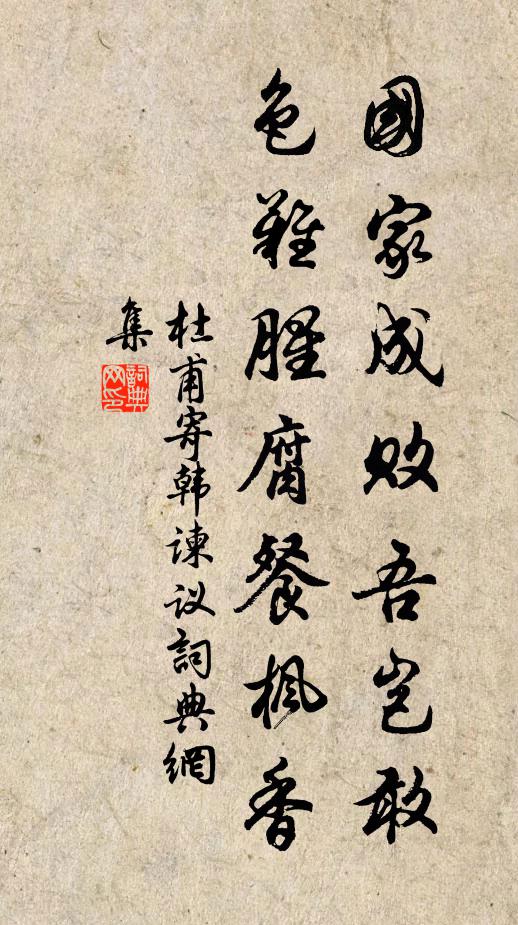 國家成敗吾豈敢
色難腥腐餐楓香
杜甫寄韩谏议詞典網
集
詞典
网印